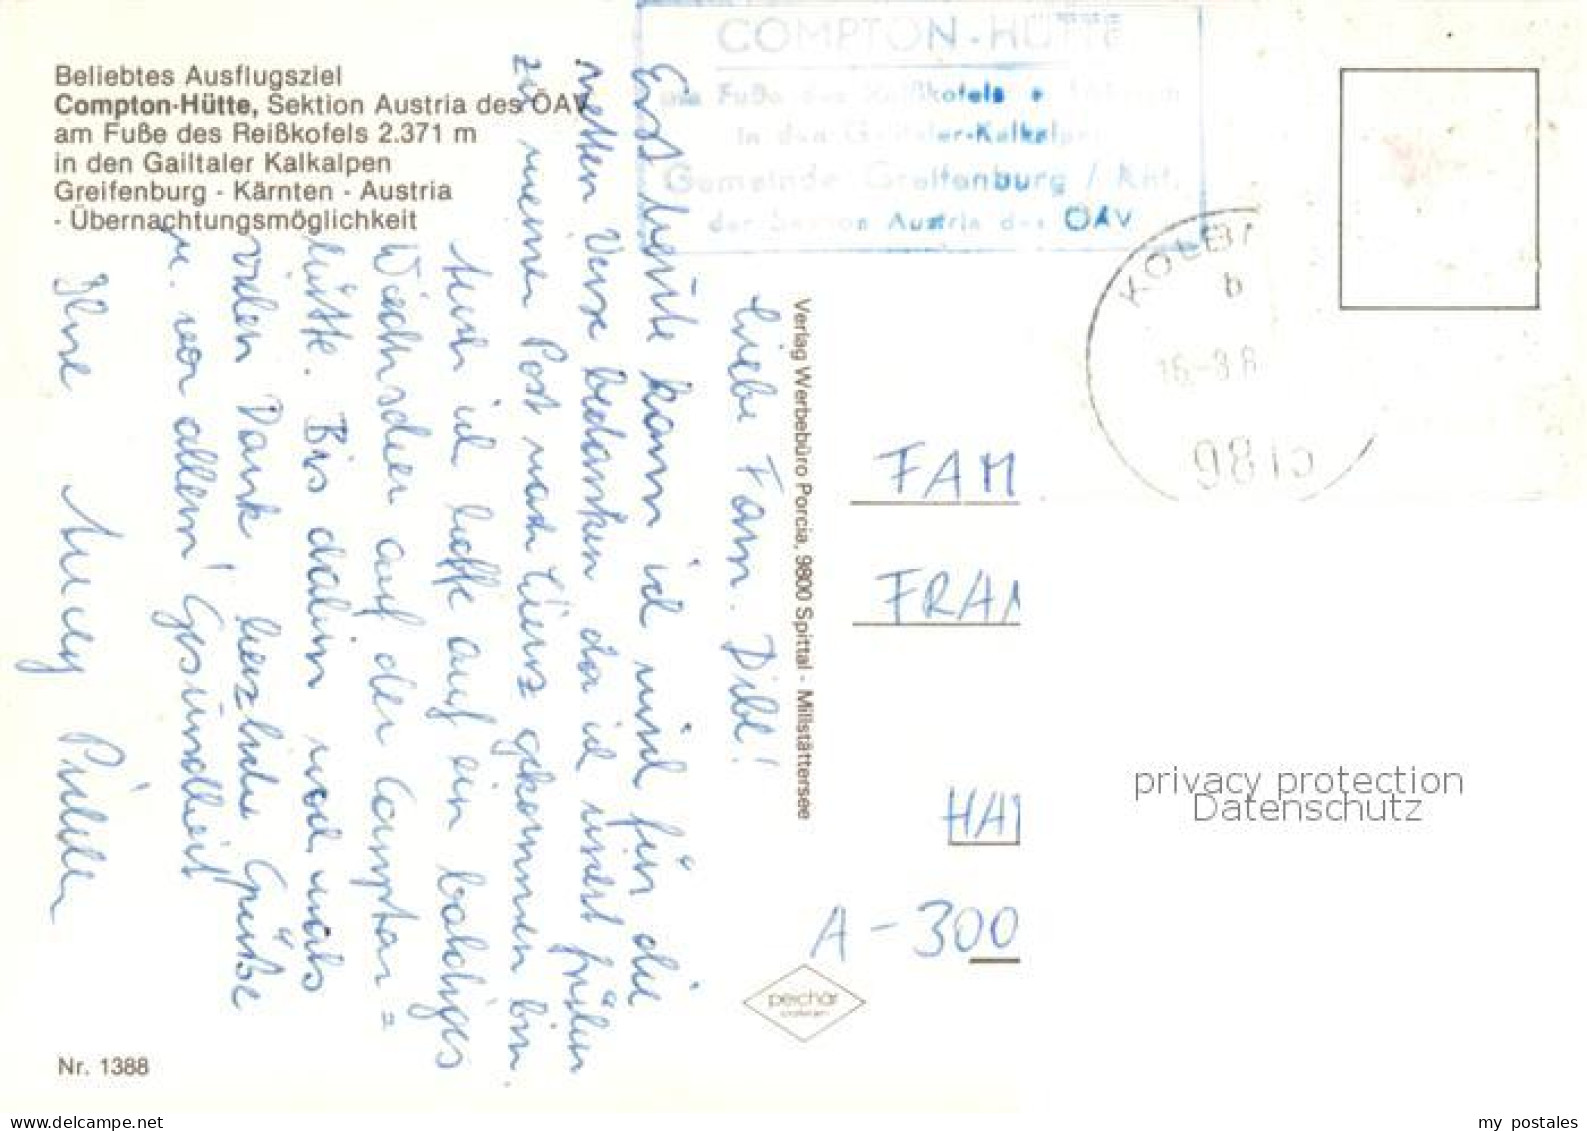 Beliebtes Ausflugsziel
Compton-Hütte, Sektion Austria des ÖAV
am Fuße des Reißkofels 2.371 m
in den Gailtaler Kalkalpen
Greifenburg - Kärnten - Austria
- Übernachtungsmöglichkeit
COMPTON-HÜTTE
am Fuße des Reißkofels
in den Gailtaler-Kalkalpen
Gemeinde Greifenburg / Knt.
der Sektion Austria des ÖAV
b
9815
Liebe Fam. Dibl!
Erst heute kann ich mich für die
netten Verse bedanken da ich nicht früher
zu meiner Post nach gekommen bin.
Auch ich hoffe auf ein baldiges
Wiedersehen auf der Compton=
hütte. Bis dahin noch mals
vielen Dank, herzliche Grüße
u. vor allem Gesundheit
Ihre
Verlag Werbebüro Porcia, 9800 Spittal - Millstättersee
FAM
FRAN
HAT
A - 300
peichär
Nr. 1388
privacy protection
Datenschutz
www.delcampe.net
my_postales